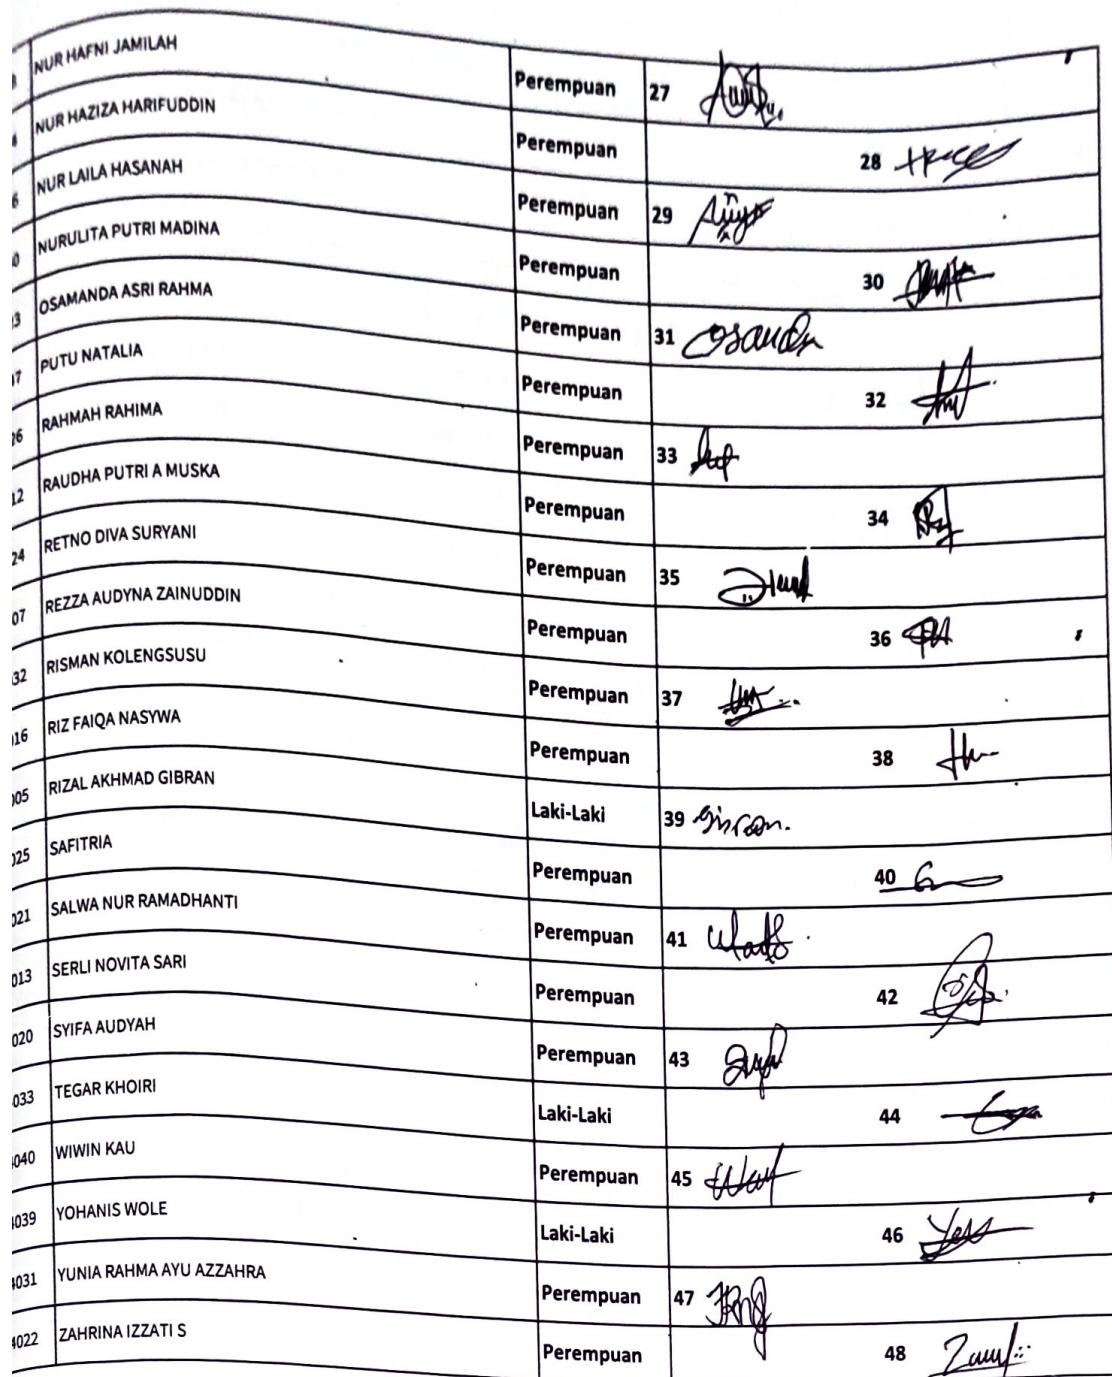 NUR HAFNI JAMILAH Perempuan 27
NUR HAZIZA HARIFUDDIN Perempuan 28
6 NUR LAILA HASANAH Perempuan 29
0 NURULITA PUTRI MADINA Perempuan 30
3 OSAMANDA ASRI RAHMA Perempuan 31
7 PUTU NATALIA Perempuan 32
26 RAHMAH RAHIMA Perempuan 33
12 RAUDHA PUTRI A MUSKA Perempuan 34
24 RETNO DIVA SURYANI Perempuan 35
07 REZZA AUDYNA ZAINUDDIN Perempuan 36
32 RISMAN KOLENGSUSU Perempuan 37
016 RIZ FAIQA NASYWA Perempuan 38
005 RIZAL AKHMAD GIBRAN Laki-Laki 39 Gibran.
025 SAFITRIA Perempuan 40
021 SALWA NUR RAMADHANTI Perempuan 41
013 SERLI NOVITA SARI Perempuan 42
020 SYIFA AUDYAH Perempuan 43
033 TEGAR KHOIRI Laki-Laki 44
040 WIWIN KAU Perempuan 45
4039 YOHANIS WOLE Laki-Laki 46 Yess
4031 YUNIA RAHMA AYU AZZAHRA Perempuan 47
4022 ZAHRINA IZZATI S Perempuan 48